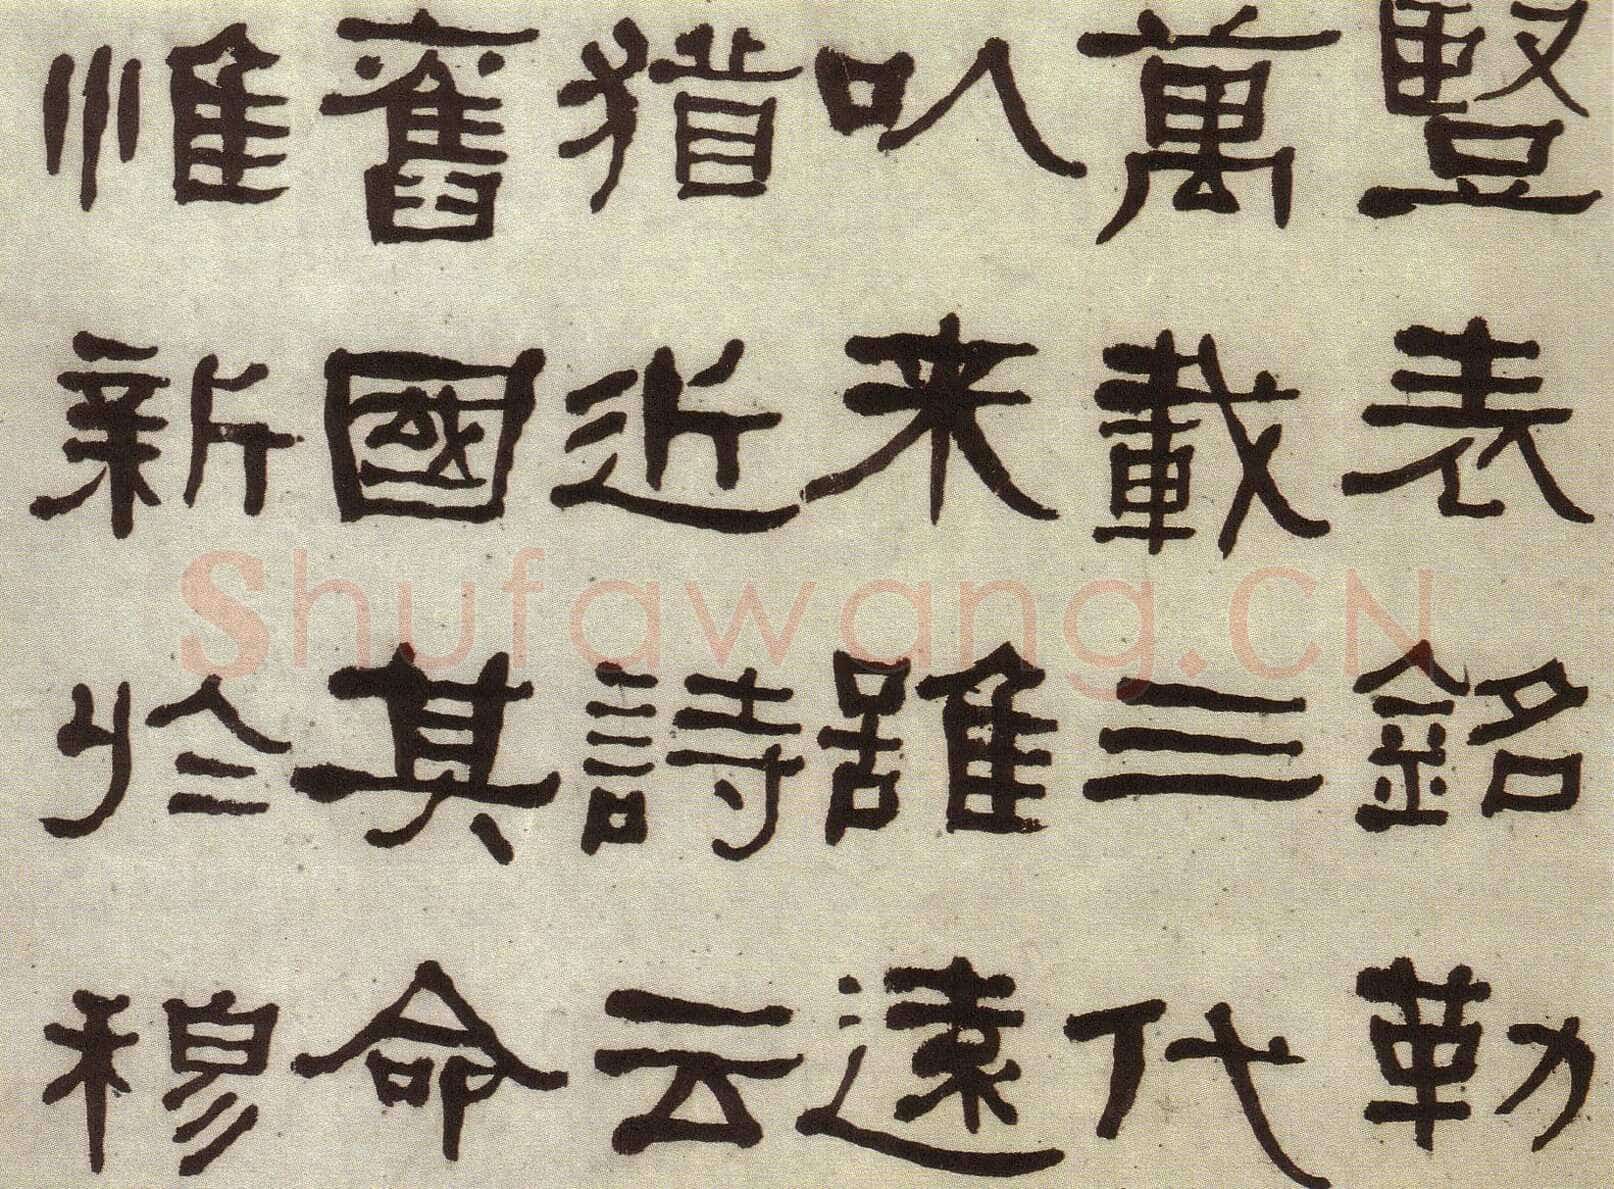 豎表銘勒
萬載三代
以来雖遠
猶近詩云
舊國其命
惟新於穆
Shufawang.CN